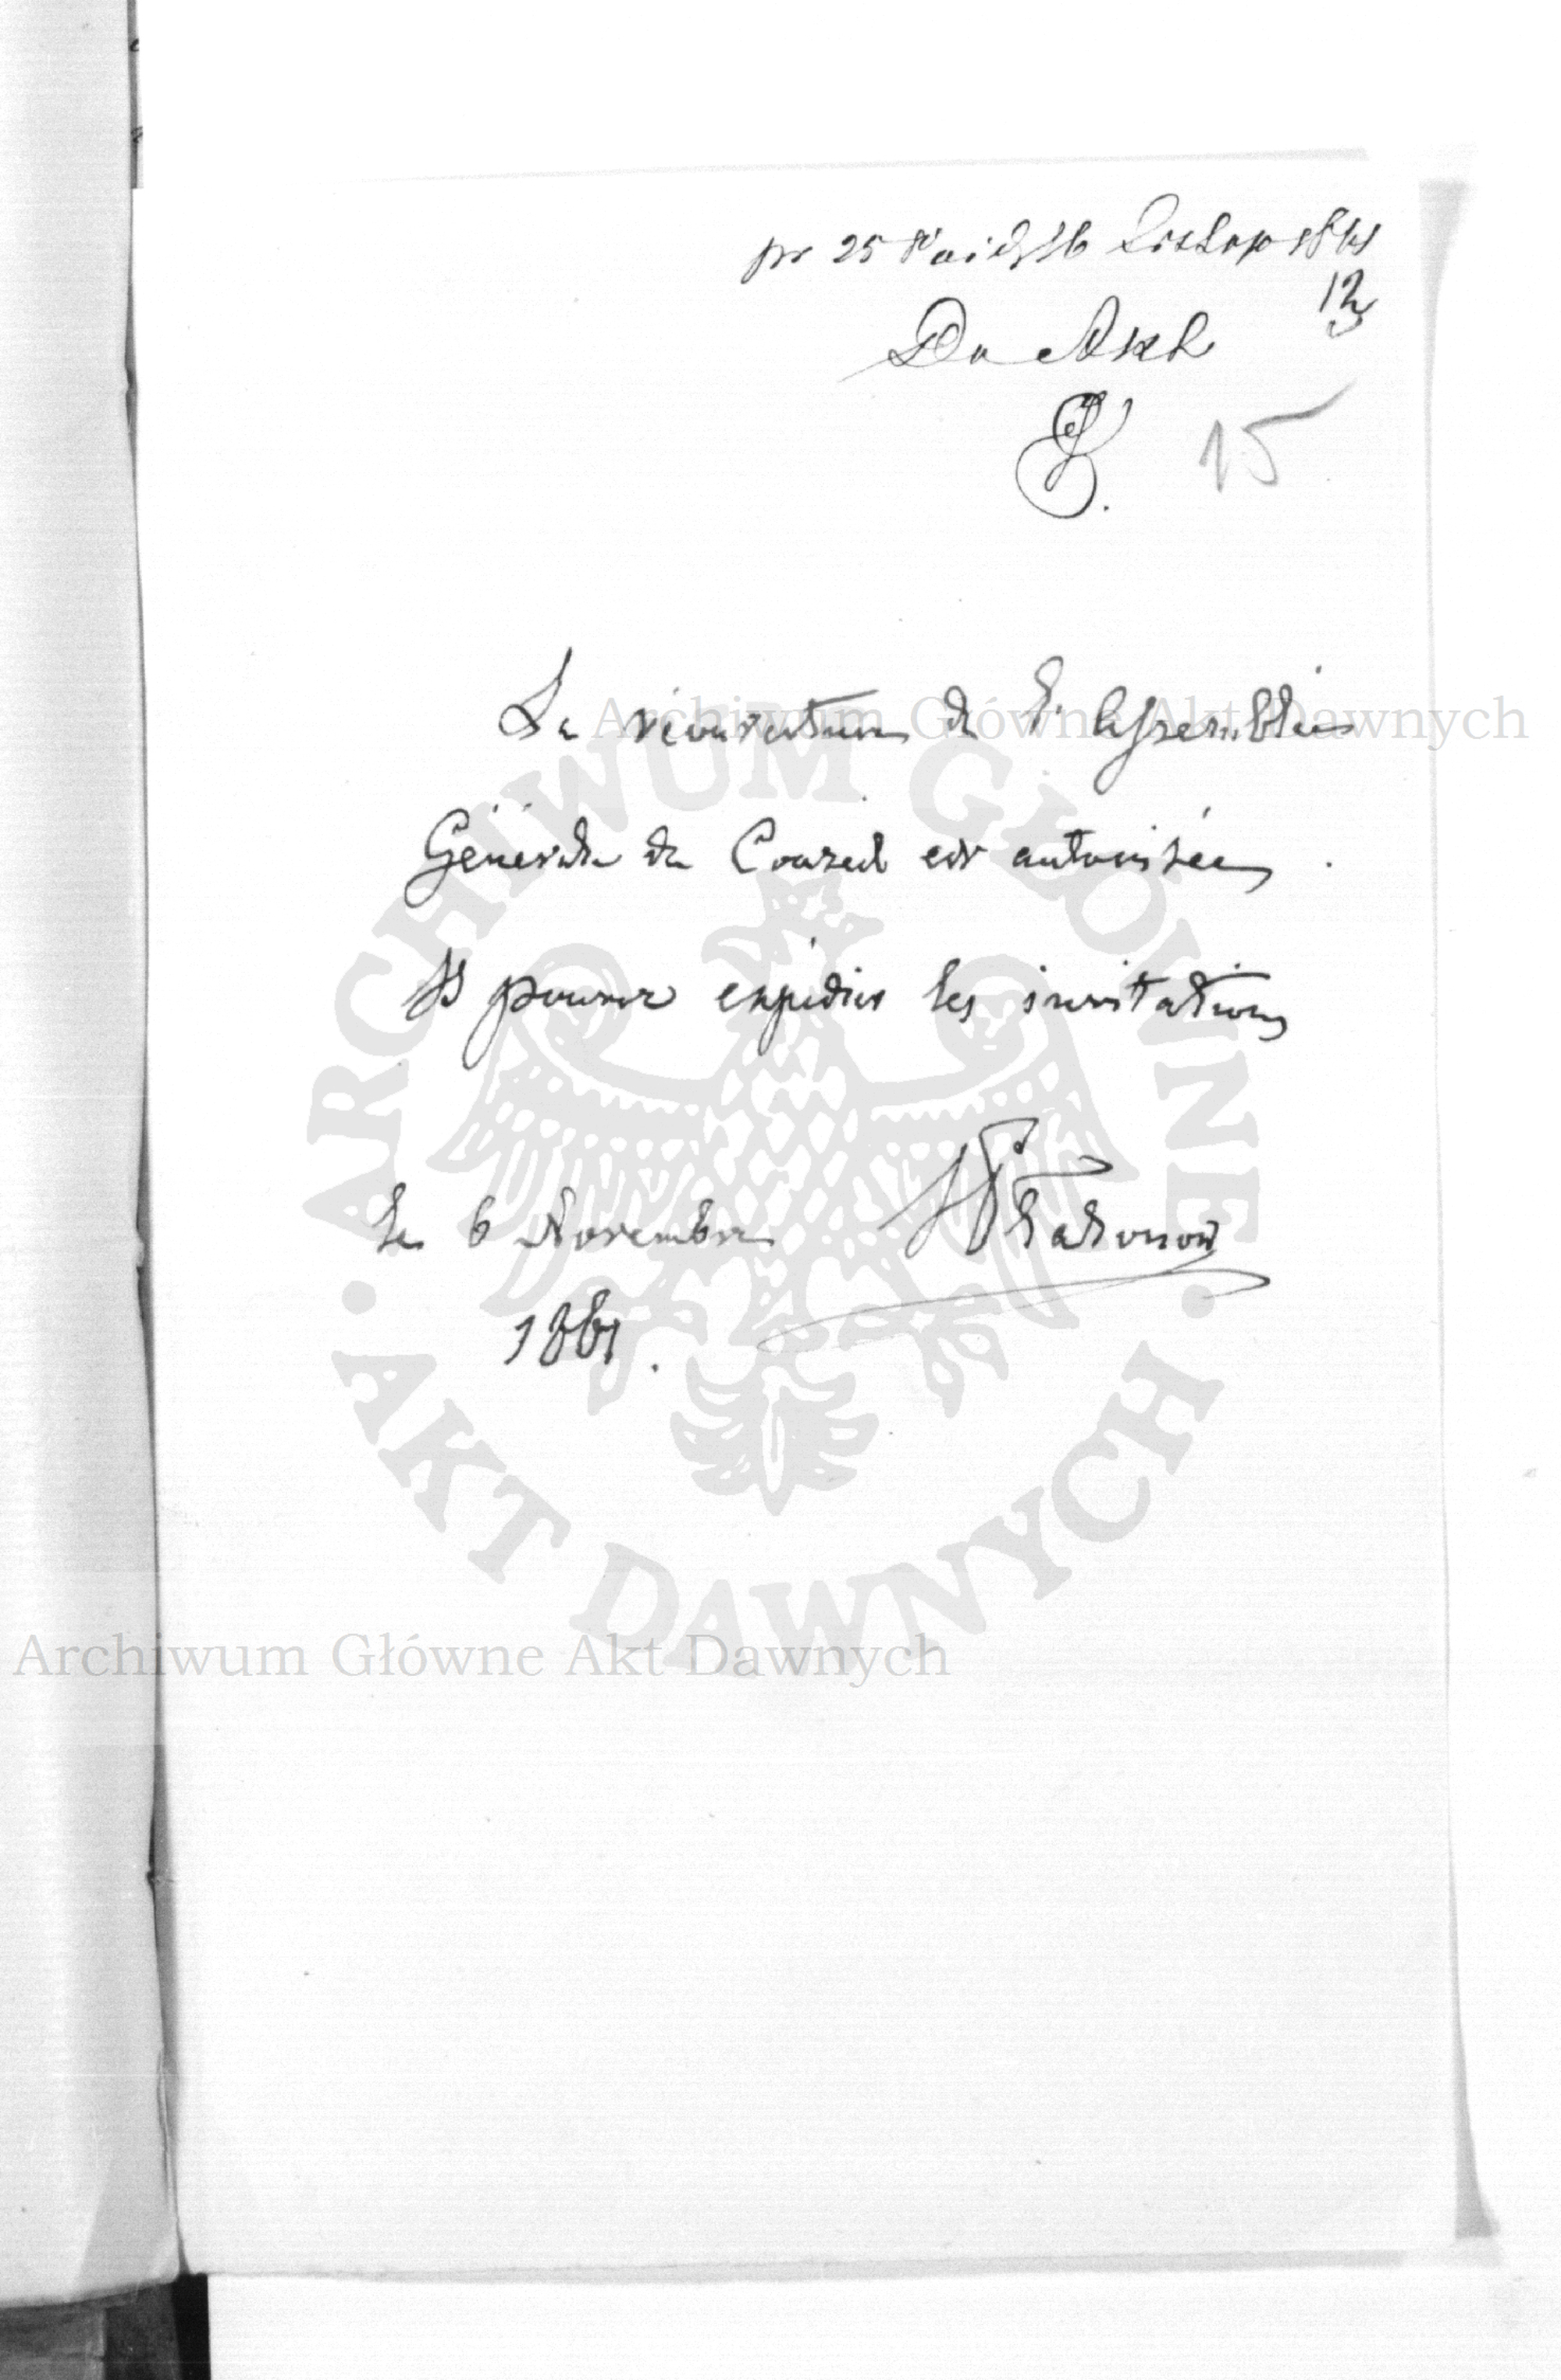 pr 25 Paźdz/6 Listop 1861
12
Do Akt
15
La réouverture de l'Assemblée
Générale du Conseil est autorisée.
expédier les invitations
Le 6 Novembre Platonow
1861.
Archiwum Główne Akt Dawnych
ARCHIWUM GŁÓWNE AKT DAWNYCH
Archiwum Główne Akt Dawnych